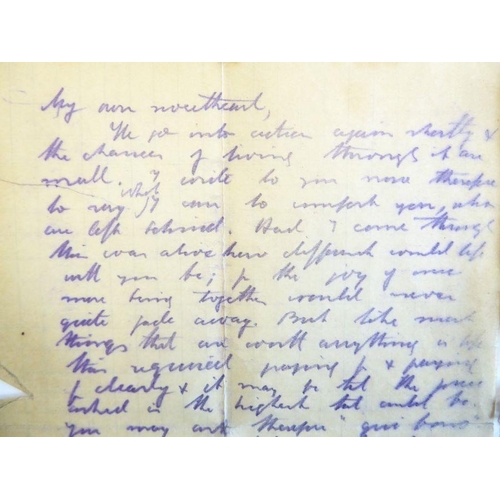 My own sweetheart,
We go into action again shortly &
the chances of living through it are
small. I write to you now therefore
what
to say I can to comfort you, who
are left behind. Had I come through
this war alive how different would life
with you be; for the joy of once
more being together would never
quite fade away. But like most
things that are worth anything in life
this required paying for & paying
for dearly & it may be that the price
asked is the highest that could be.
you may ask therefore "qui bono"